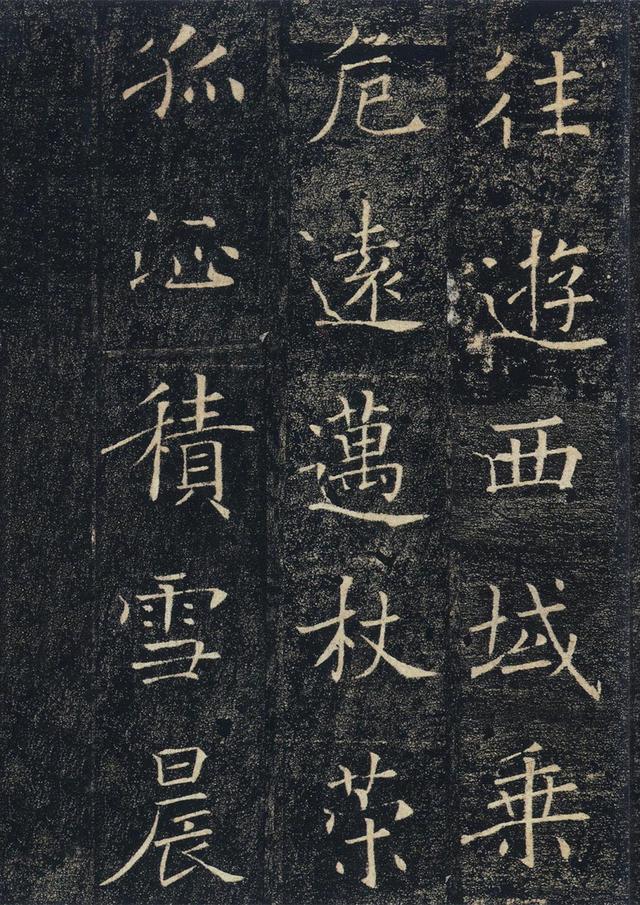 往遊西域乘
危遠邁杖策
孤征積雪晨